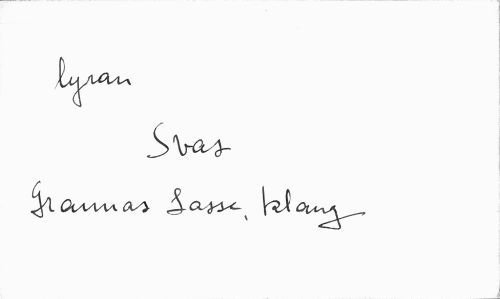 lyran
Svas
Grannas Lasse, klang